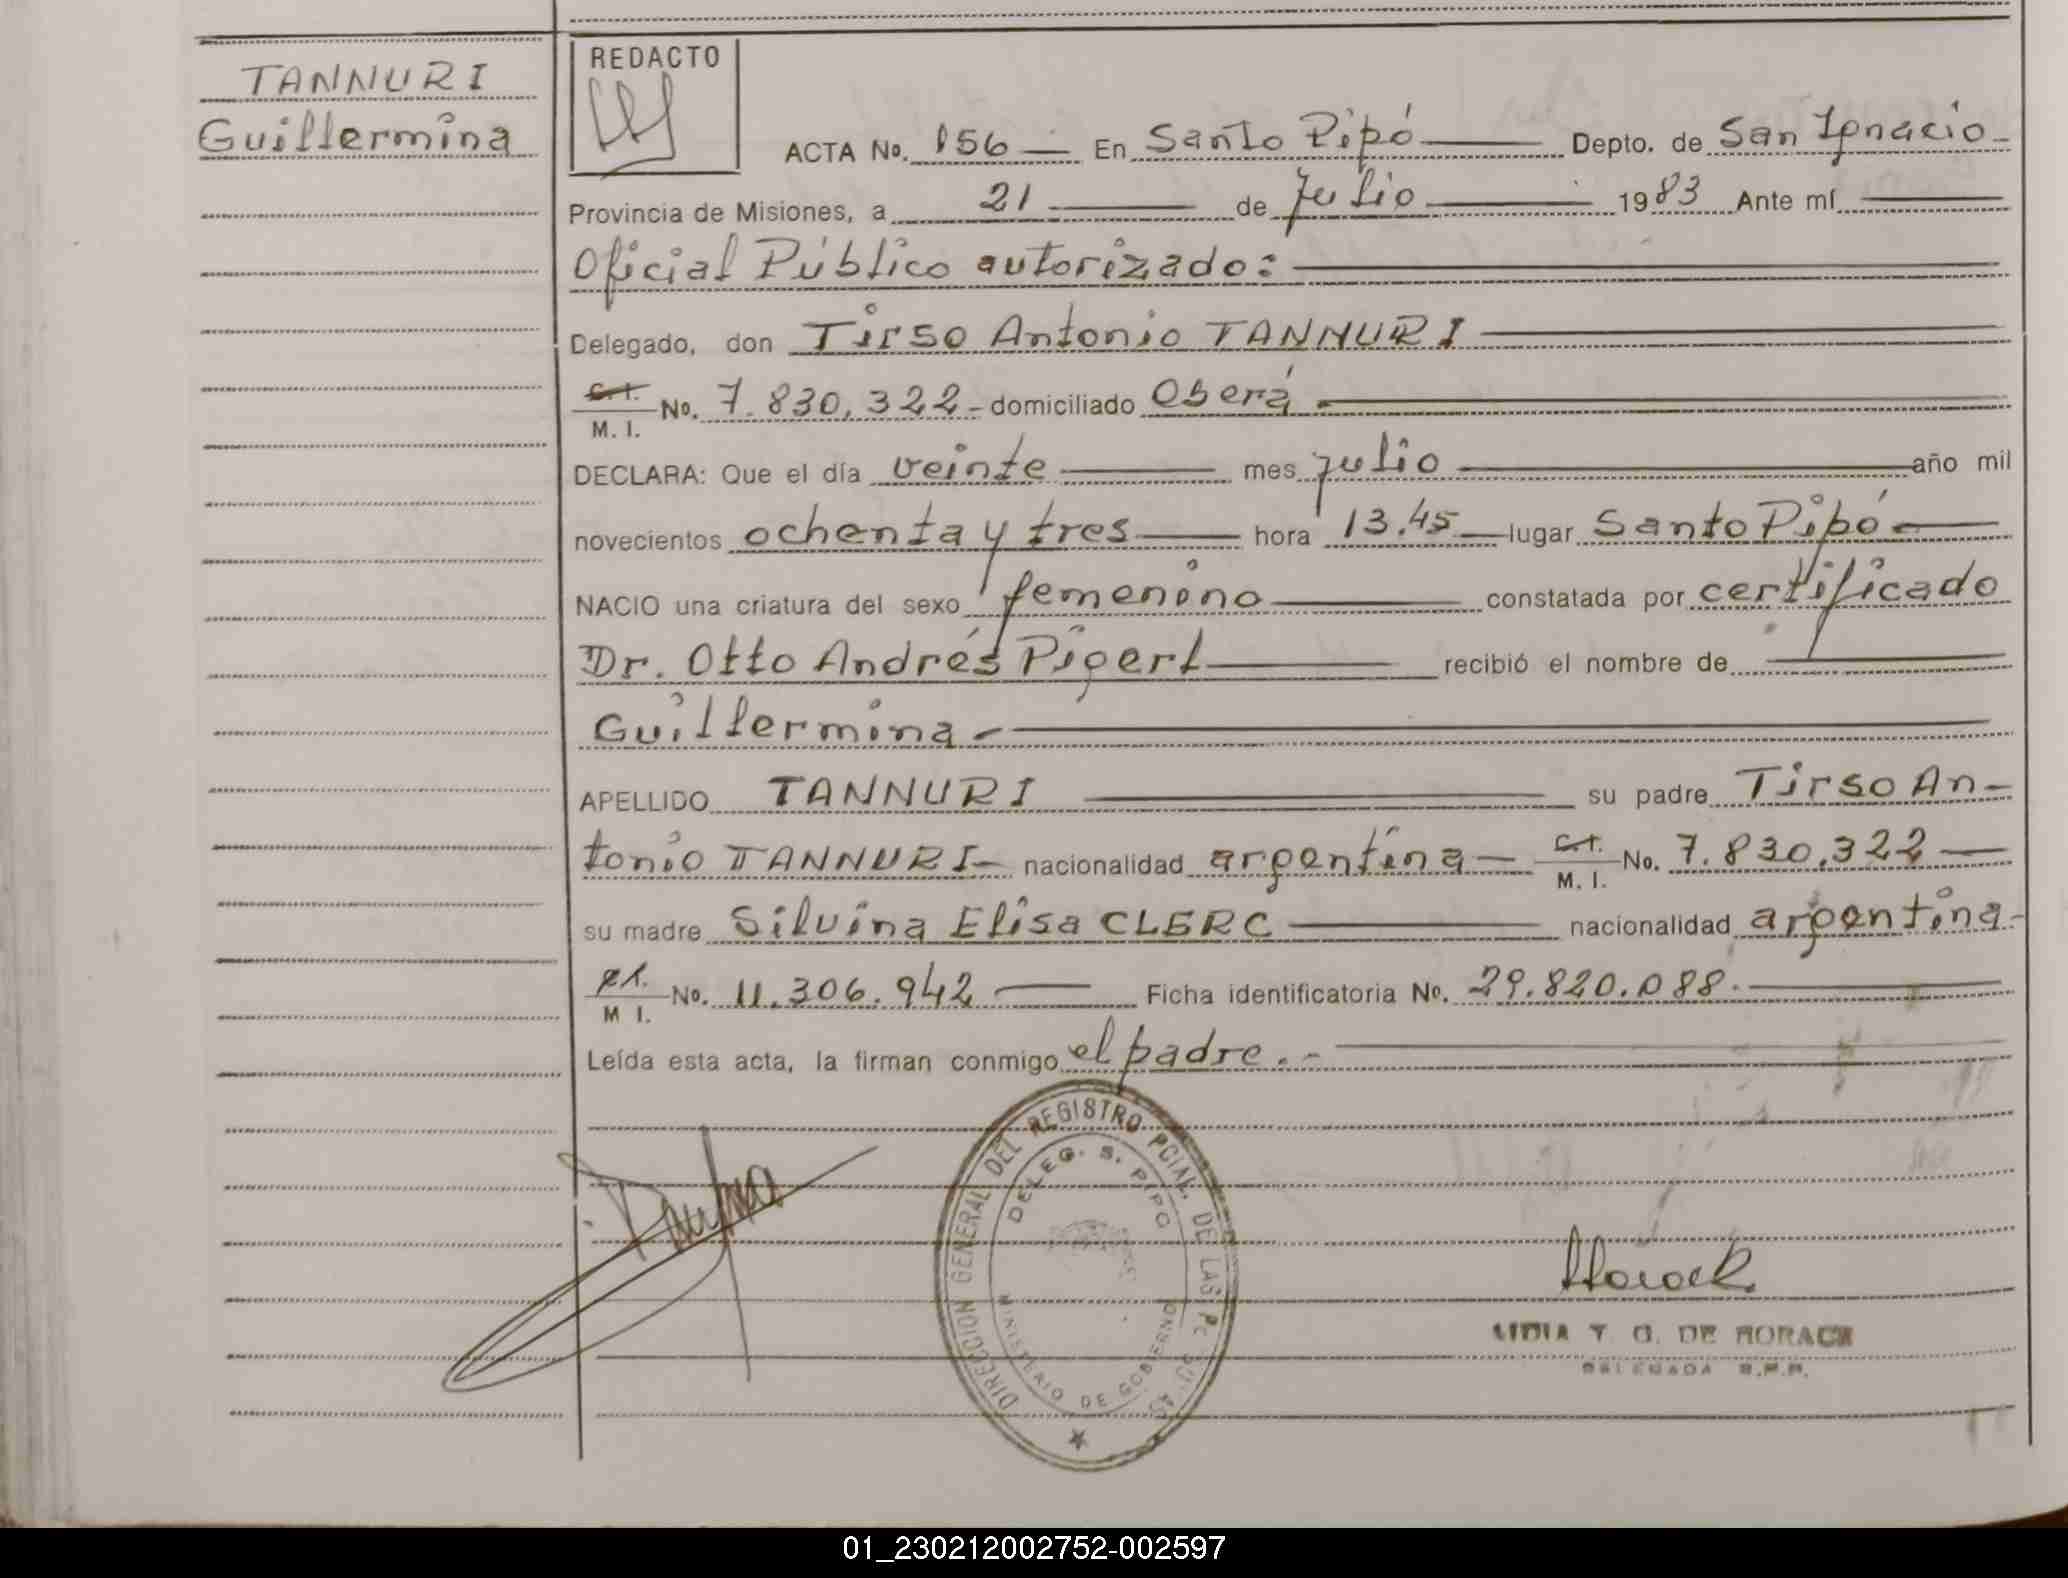 TANNURI
Guillermina
REDACTO
ACTA No. 156 — En Santo Pipó — Depto. de San Ignacio -
Provincia de Misiones, a 21 — de Julio — 1983 Ante mí —
Oficial Público autorizado: —
Delegado, don Tirso Antonio TANNURI —
C.I.
M. I. No. 7.830.322 - domiciliado Oberá . —
DECLARA: Que el día veinte — mes julio — año mil
novecientos ochenta y tres — hora 13.45 — lugar Santo Pipó —
NACIO una criatura del sexo femenino — constatada por certificado
Dr. Otto Andrés Pigerl — recibió el nombre de —
Guillermina - —
APELLIDO TANNURI — su padre Tirso An-
tonio TANNURI - nacionalidad argentina — C.I.
M. I. No. 7.830.322 —
su madre Silvina Elisa CLERC — nacionalidad argentina -
C.I.
M I. No. 11.306.942 — Ficha identificatoria No. 29.820.088. —
Leída esta acta, la firman conmigo el padre . - —
DIRECCION GENERAL DEL REGISTRO PCIAL. DE LAS
DELEG. S. PIPO
MINISTERIO DE GOBIERNO
LIDIA T. G. DE HORACK
DELEGADA R.P.P.
01_230212002752-002597